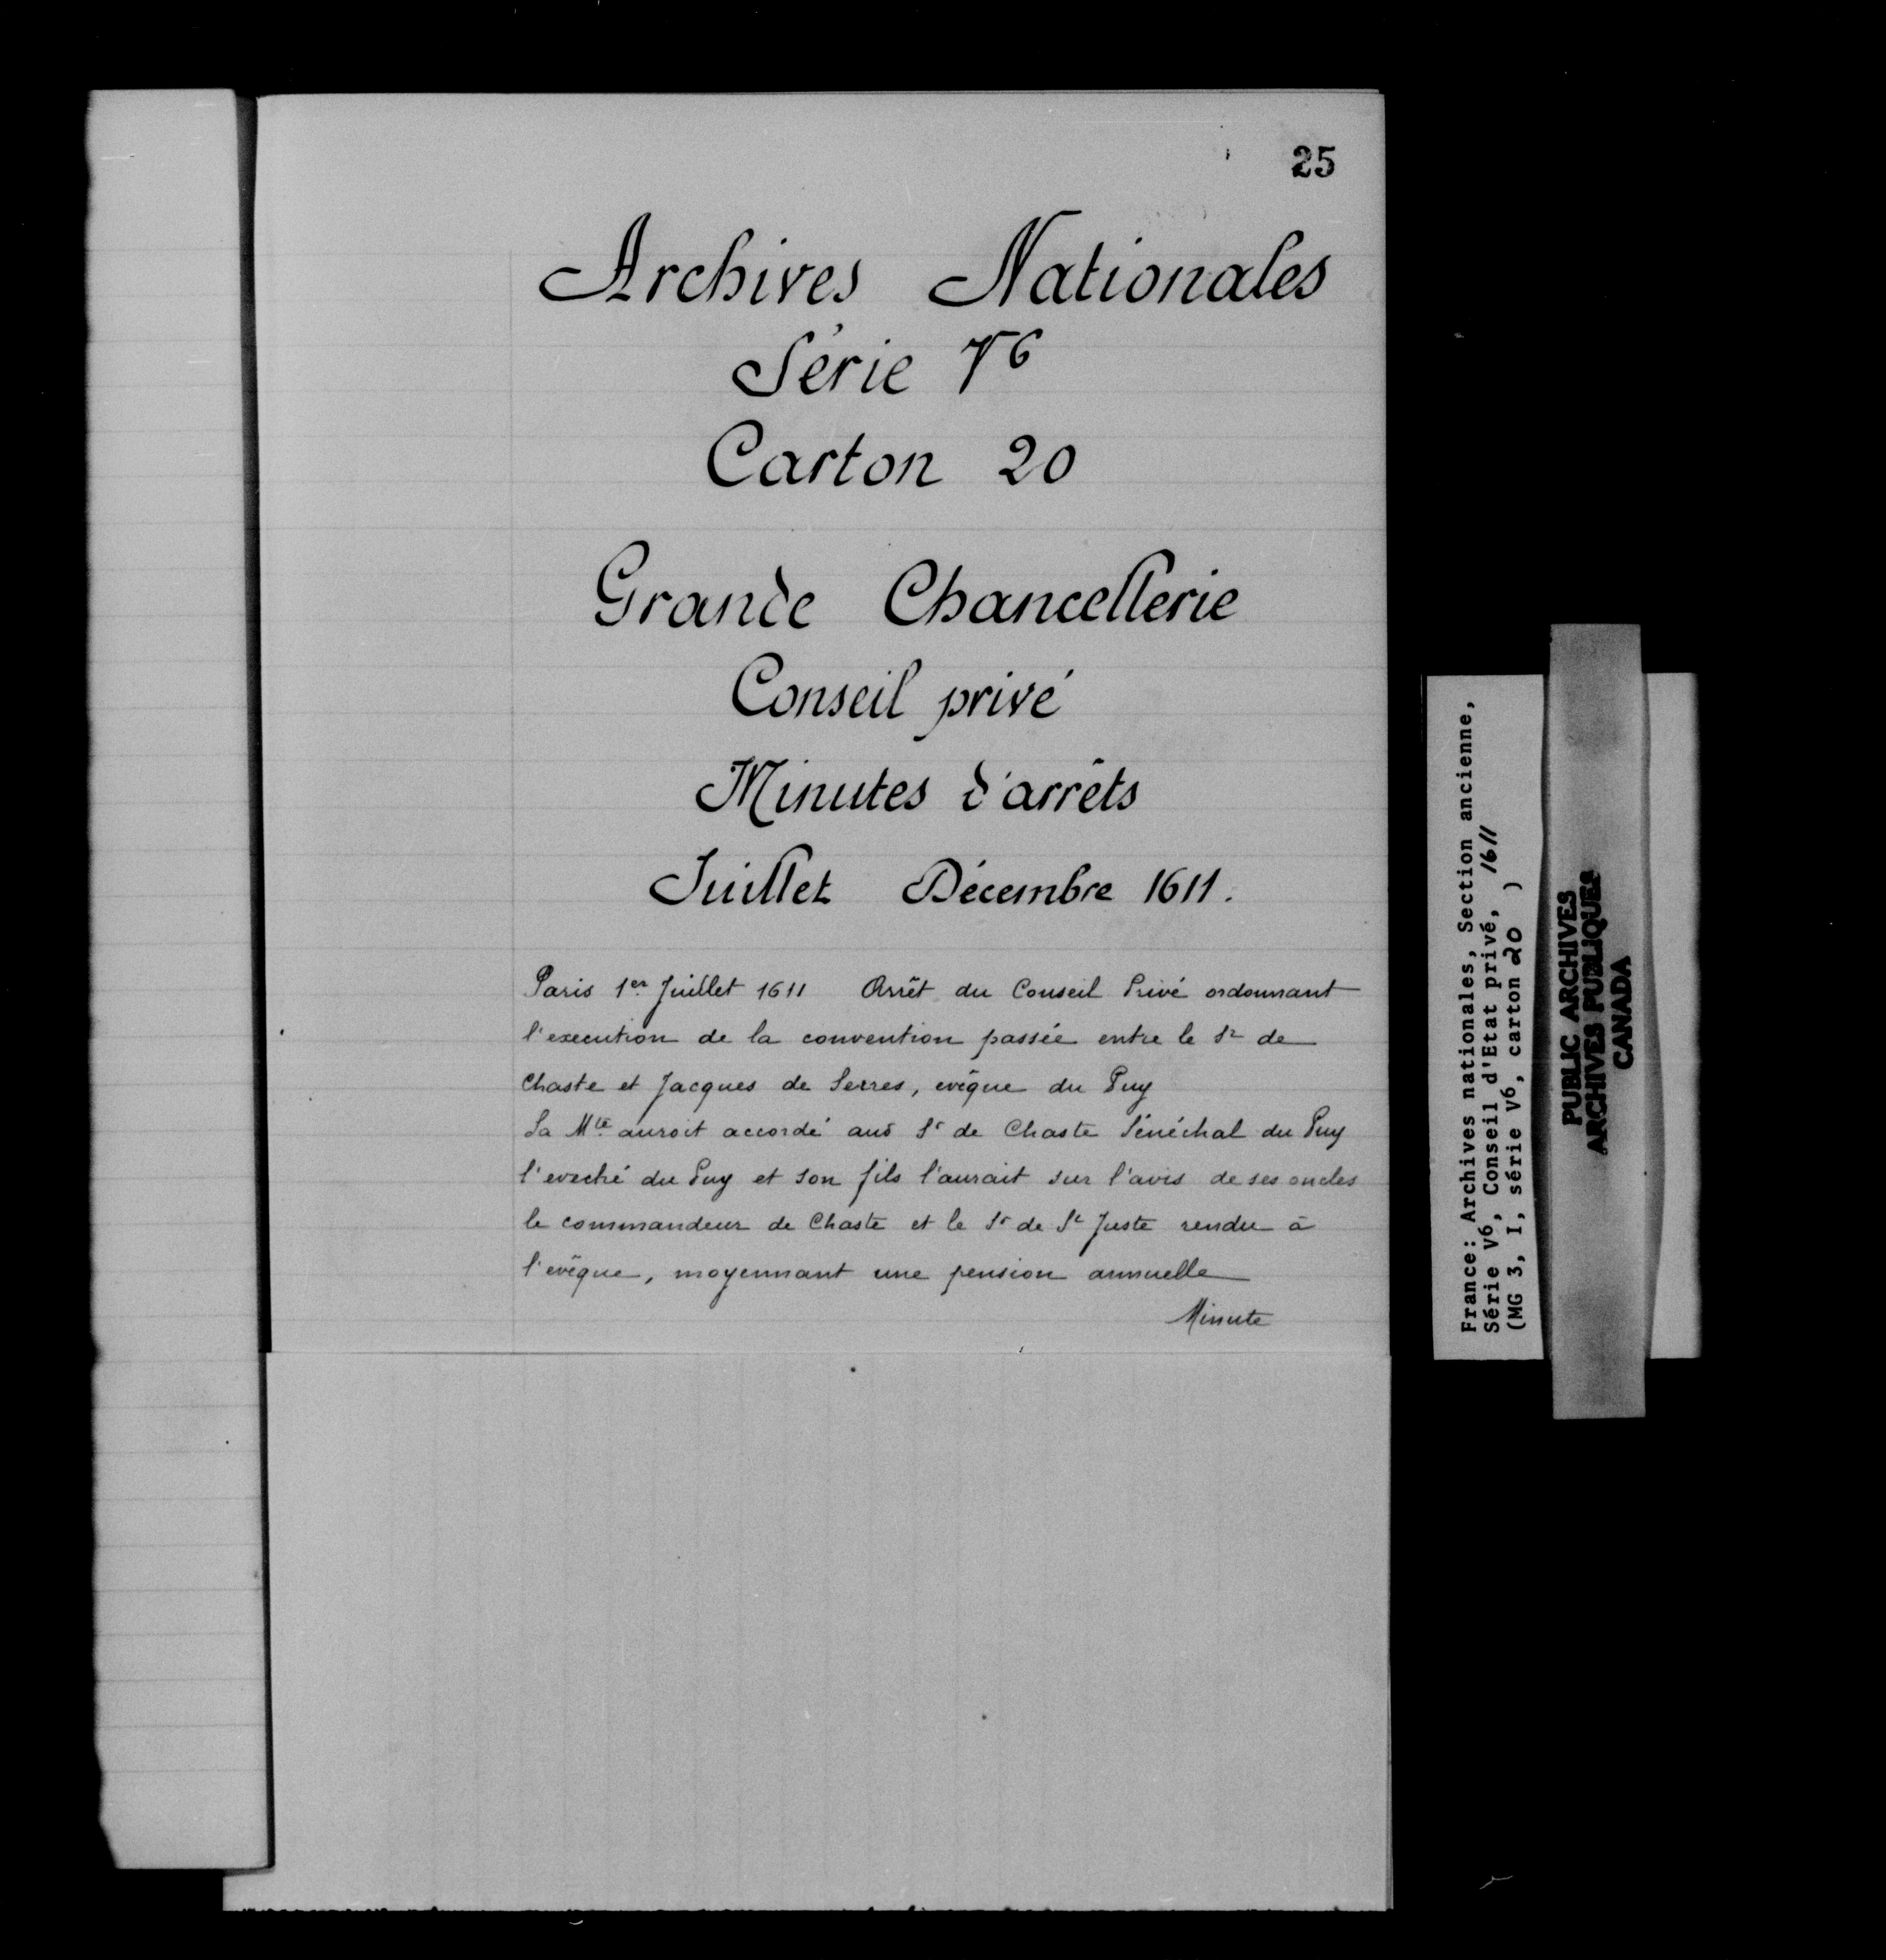 25
Archives Nationales
Série V6
Carton 20
Grande Chancellerie
Conseil privé
Minutes d'arrêts
Juillet Décembre 1611.
Paris 1er Juillet 1611 Arrêt du Conseil Privé ordonnant
l'execution de la convention passée entre le Sr de
Chaste et Jacques de Serres, evêque du Puy
Sa Mté auroit accordé aud Sr de Chaste Sénéchal du Puy
l'eveché du Puy et son fils l'aurait sur l'avis de ses oncles
le commandeur de Chaste et le Sr de St Juste rendu à
l'evêque, moyennant une pension annuelle
Minute
France: Archives nationales, Section ancienne,
Série V6, Conseil d'Etat privé, 1611
(MG 3, I, série V6, carton 20 )
PUBLIC ARCHIVES
ARCHIVES PUBLIQUES
CANADA